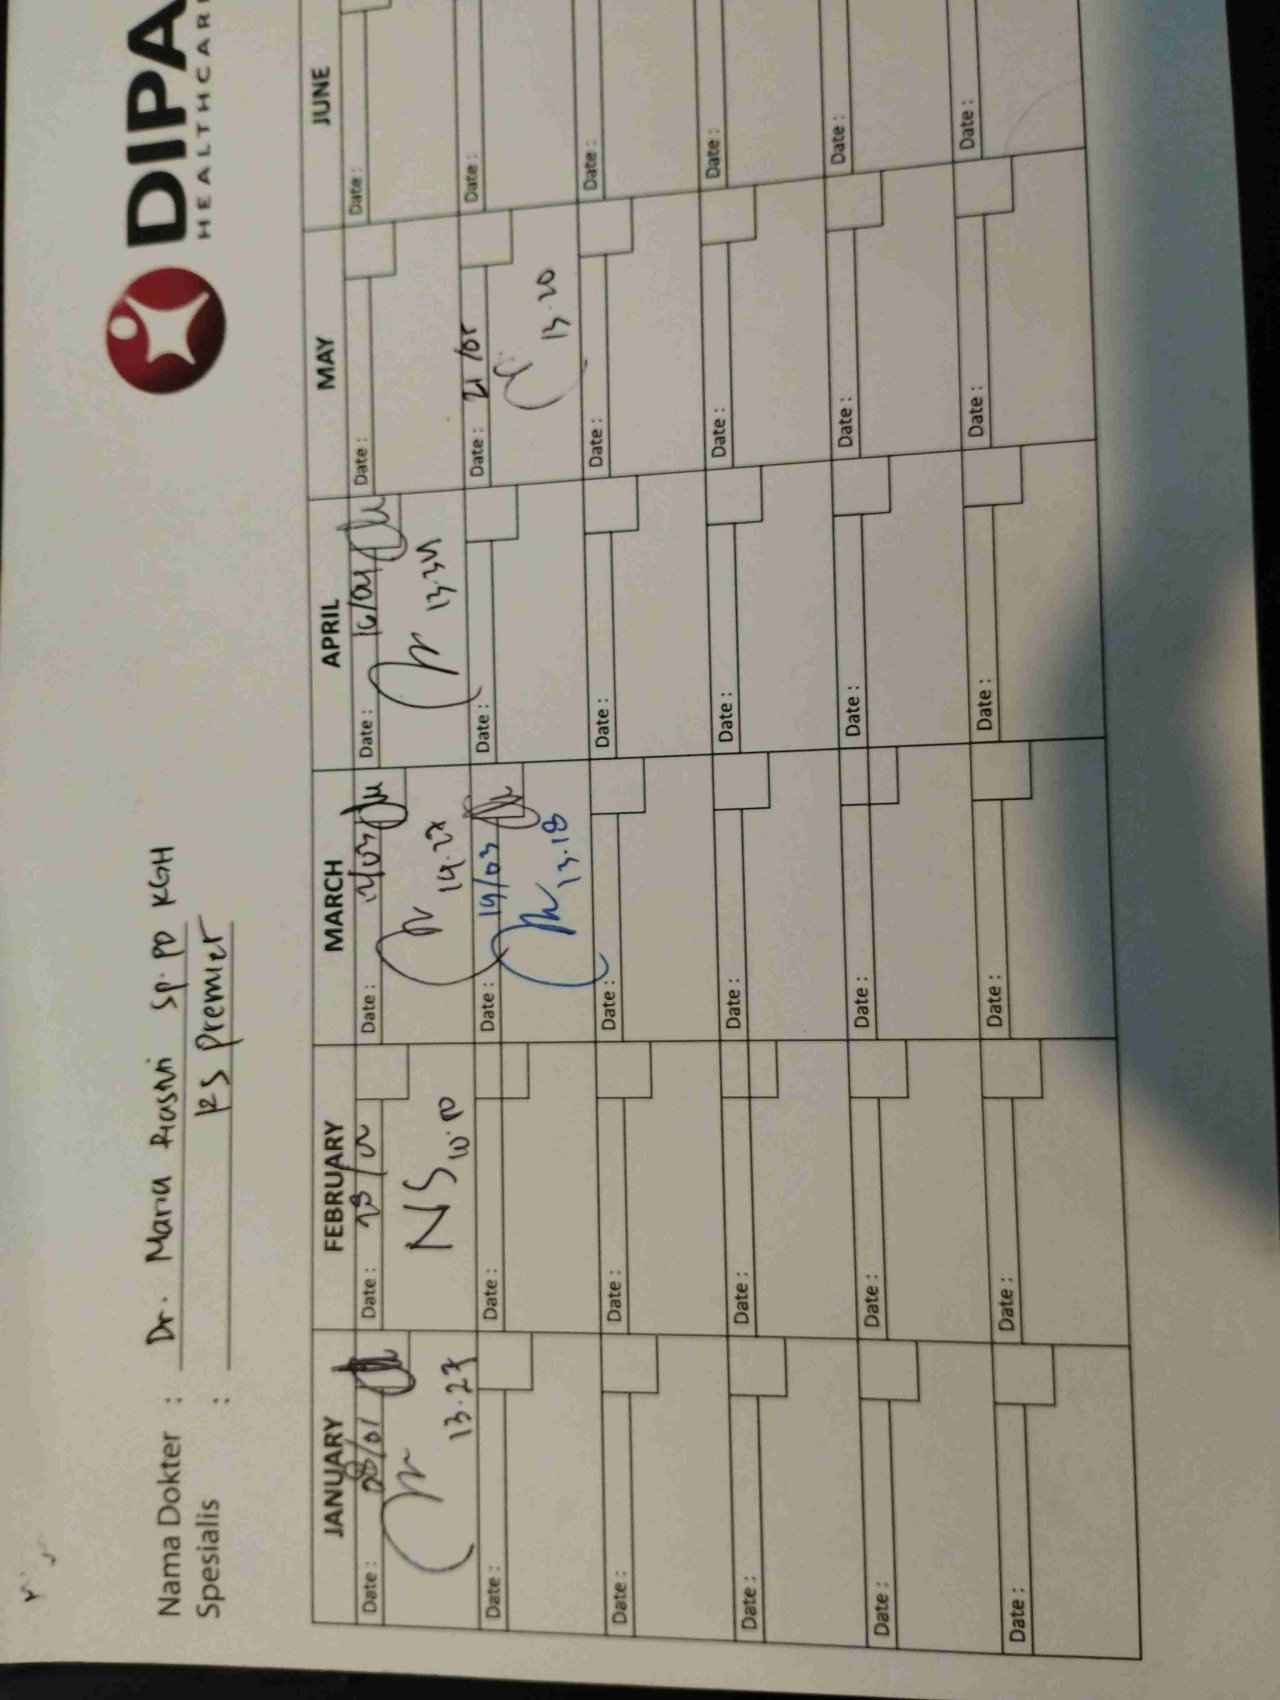 DIPA
HEALTHCAR
Nama Dokter : Dr. Maria Riastri Sp. PD KGH
Spesialis : RS Premier
JANUARY FEBRUARY MARCH APRIL MAY JUNE
Date : 08/01 Date : 28/02 Date : 12/03 Date : 16/04 Date : Date :
13.27 NS 10.10 14.27 13.34
Date : Date : Date : 19/03 Date : Date : 21/05 Date :
13.18 13.20
Date : Date : Date : Date : Date : Date :
Date : Date : Date : Date : Date : Date :
Date : Date : Date : Date : Date : Date :
Date : Date : Date : Date : Date : Date :